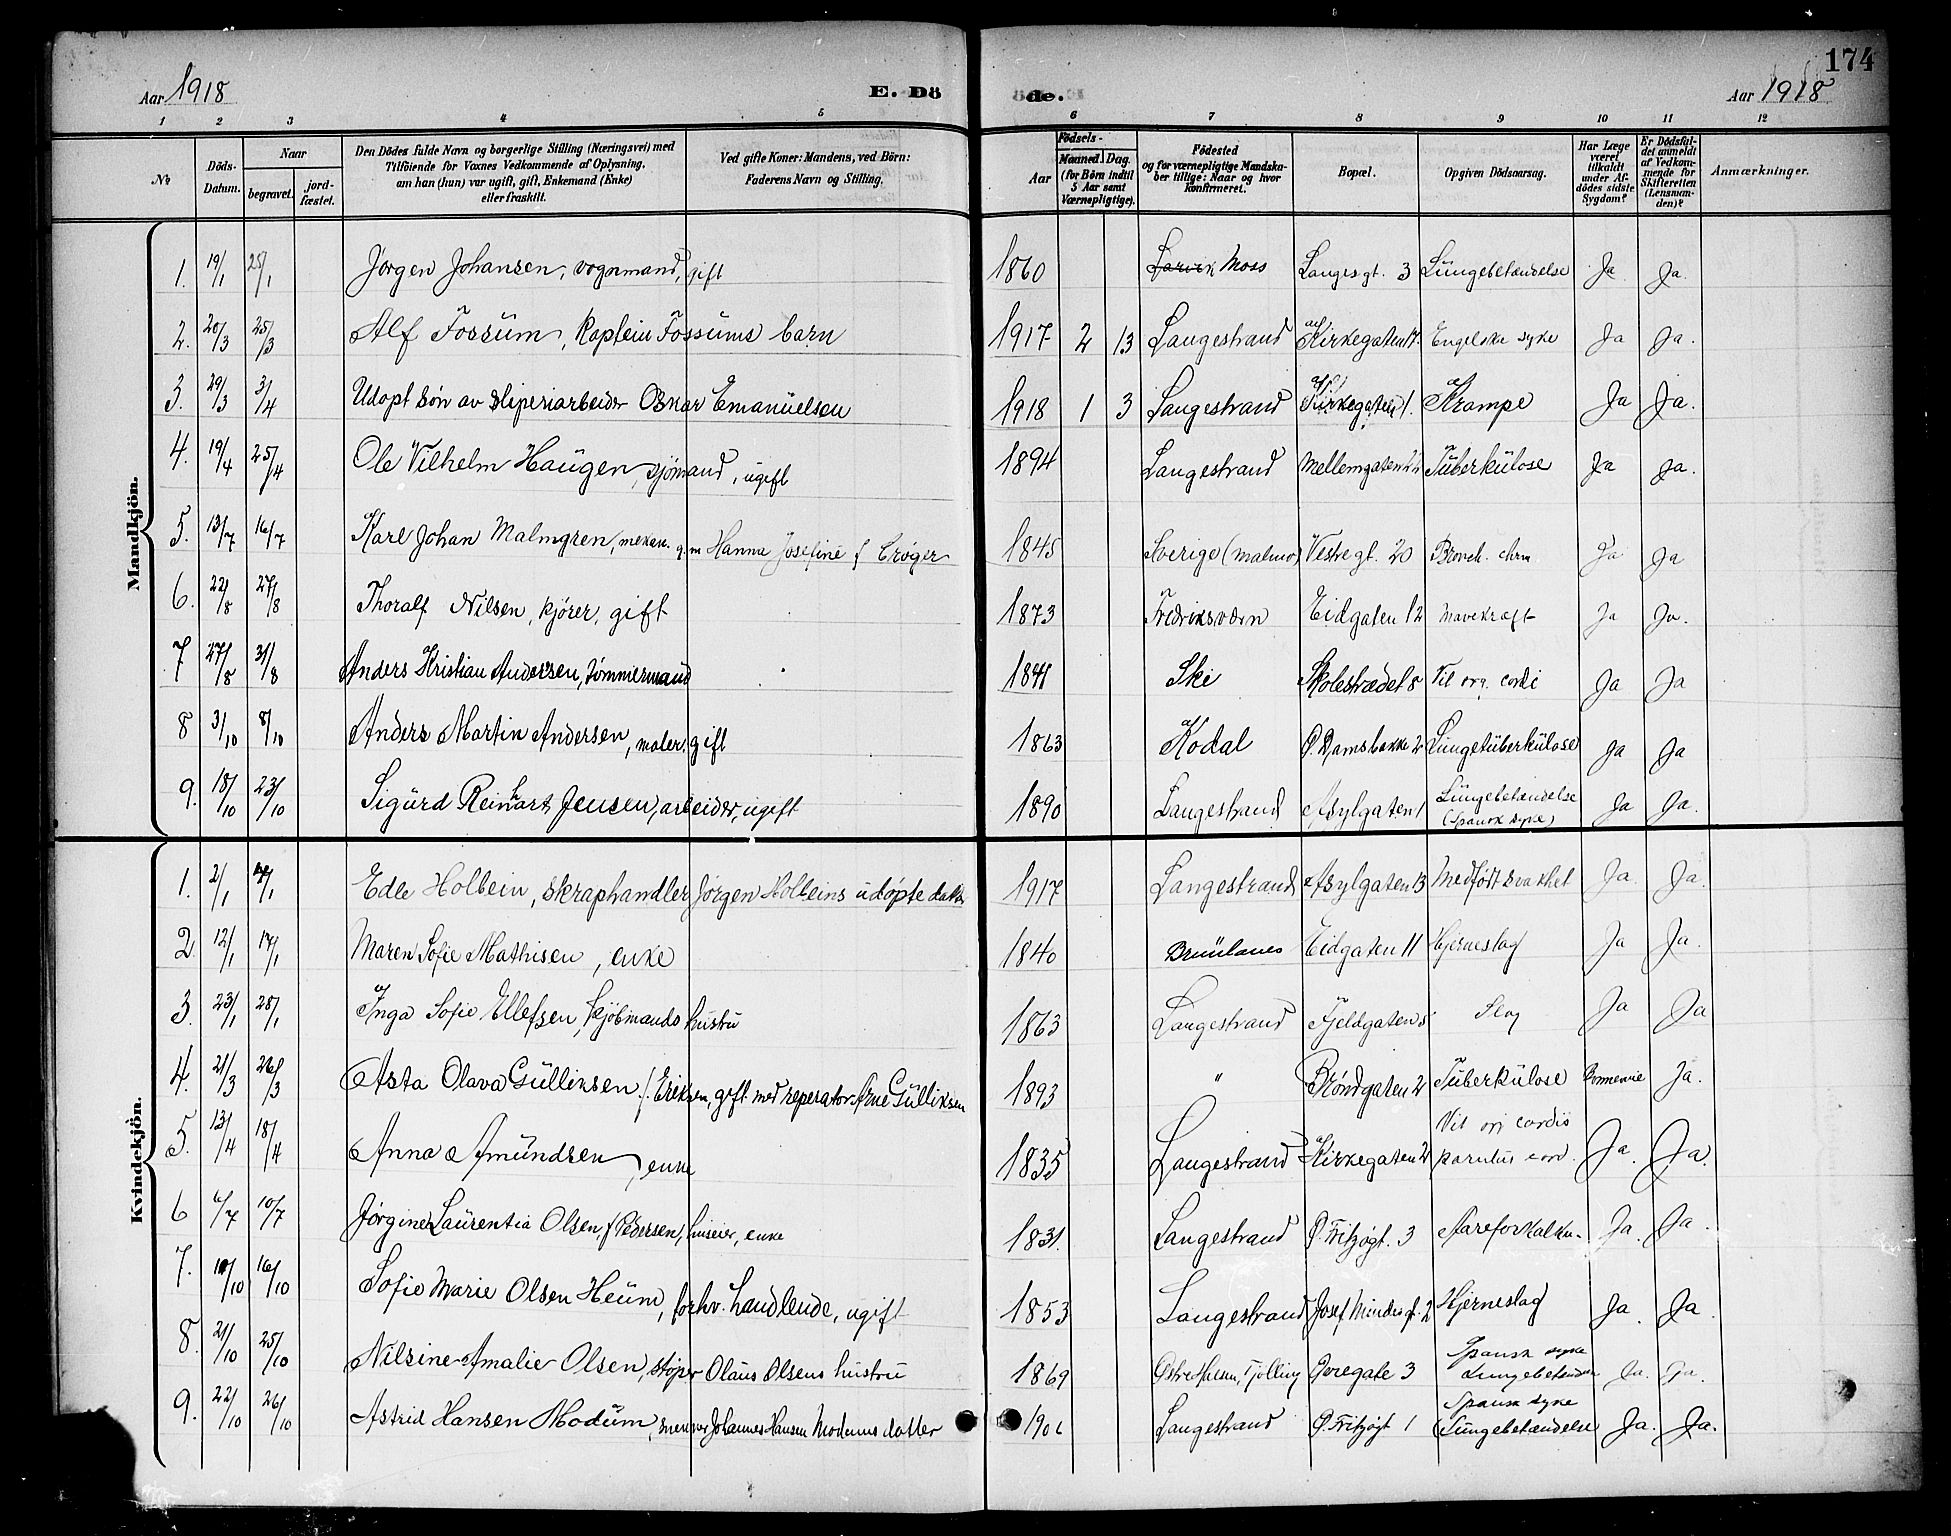 174
Aar 1918 E. Dö de. Aar 1918
1 2 3 4 5 6 7 8 9 10 11 12
№ Döds-Datum. Naar begravet. jord-fæstet. Den Dödes fulde Navn og borgerlige Stilling (Næringsvei) med Tilföiende for Voxnes Vedkommende af Oplysning, om han (hun) var ugift, gift, Enkemand (Enke) eller fraskilt. Ved gifte Koner: Mandens, ved Börn: Faderens Navn og Stilling. Födsels- Aar Maaned. Dag. (for Börn indtil 5 Aar samt Værnepligtige). Födested og for værnepligtige Mandskaber tillige: Naar og hvor konfirmeret. Bopæl. Opgiven Dödsaarsag. Har Læge været tilkaldt under Afdödes sidste Sygdom? Er Dödsfaldet anmeldt af Vedkommende for Skifteretten (Lensmanden)? Anmærkninger.
Mandkjön.
1. 19/1 25/1 Jørgen Johansen, vognmand, gift 1860 Larvik Moss Langesgt. 3 Lungebetændelse Ja Ja.
2. 20/3 25/3 Alf Fossum, Kaptein Fossums barn 1917 2 13 Langestrand Kirkegaten 17. Engelske syke Ja Ja.
3. 29/3 3/4 Udøpt søn av sliperiarbeider Oskar Emanuelsen 1918 1 3 Langestrand Kirkegaten 1. Krampe Ja Ja.
4. 19/4 25/4 Ole Vilhelm Haugen, sjömand, ugift 1894 Langestrand Mellemgaten Tuberkulose Ja Ja.
5. 13/7 16/7 Karl Johan Malmgren, mekan. g. m Hanna Josefine f Crøger 1845 Sverige (Malmø) Vestregt. 20 Bronch. chrn Ja Ja
6. 22/8 27/8 Thoralf Nilsen, kjører, gift 1873 Fredriksværn Eidgaten 12 Mavekræft Ja Ja.
7 27/8 31/8 Anders Kristian Andersen, tømmermand 1841 Ski Skolestrædet 8 Vit org. cordi Ja Ja
8 3/10 8/10 Anders Martin Andersen, maler, gift 1863 Kodal Ø. Damsbakke 2 Lungetuberkulose Ja Ja
9. 18/10 23/10 Sigurd Reinhart Jensen, arbeider, ugift 1890 Langestrand Asylgaten 1 Lungebetændelse (Spansk syke) Ja Ja.
Kvindekjön.
1. 2/1 Edle Holbein, skraphandler Jørgen Holbeins udøpte datter 1917 Langestrand Asylgaten 13 Medfødt svakhet Ja. Ja.
2 12/1 17/1 Maren Sofie Mathisen, enke 1840 Brunlanes Eidgaten 11 Hjerneslag Ja Ja.
3. 23/1 28/1 Inga Sofie Ellefsen, kjöbmands hustru 1863 Langestrand Fjeldgaten 8 Slag Ja Ja
4. 21/3 26/3 Asta Olava Gulliksen f. Eriksen, gift med reperatør Arne Gulliksen 1893 " Brøndgaten 2 Tuberkulose Ja.
5. 13/4 18/4 Anna Amundsen, enke 1835 Langestrand Kirkegaten 2 Vit org cordis Ja. Ja.
6 6/7 10/7 Jørgine Laurentia Olsen, f Pedersen, huseier, enke 1831. Langestrand Ø. Fritzøgt. 3 Aareforkalkn. Ja. Ja.
7. 16/10 Sofie Marie Olsen Heum, forhv. handlende, ugift 1853 Langestrand Josef Mindes gt. 2 Hjerneslag Ja. Ja.
8. 21/10 25/10 Nilsine Amalie Olsen, støper Olaus Olsens hustru 1869 Østre Halsen, Tjølling Øvregate 3 Spansk syke Lungebetænden Ja. Ja.
9. 22/10 26/10 Astrid Hansen Modum, snekker Johannes Hansen Modums datter Langestrand Ø. Fritzøgt 1 Spansk syke Lungebetændelse Ja. Ja.